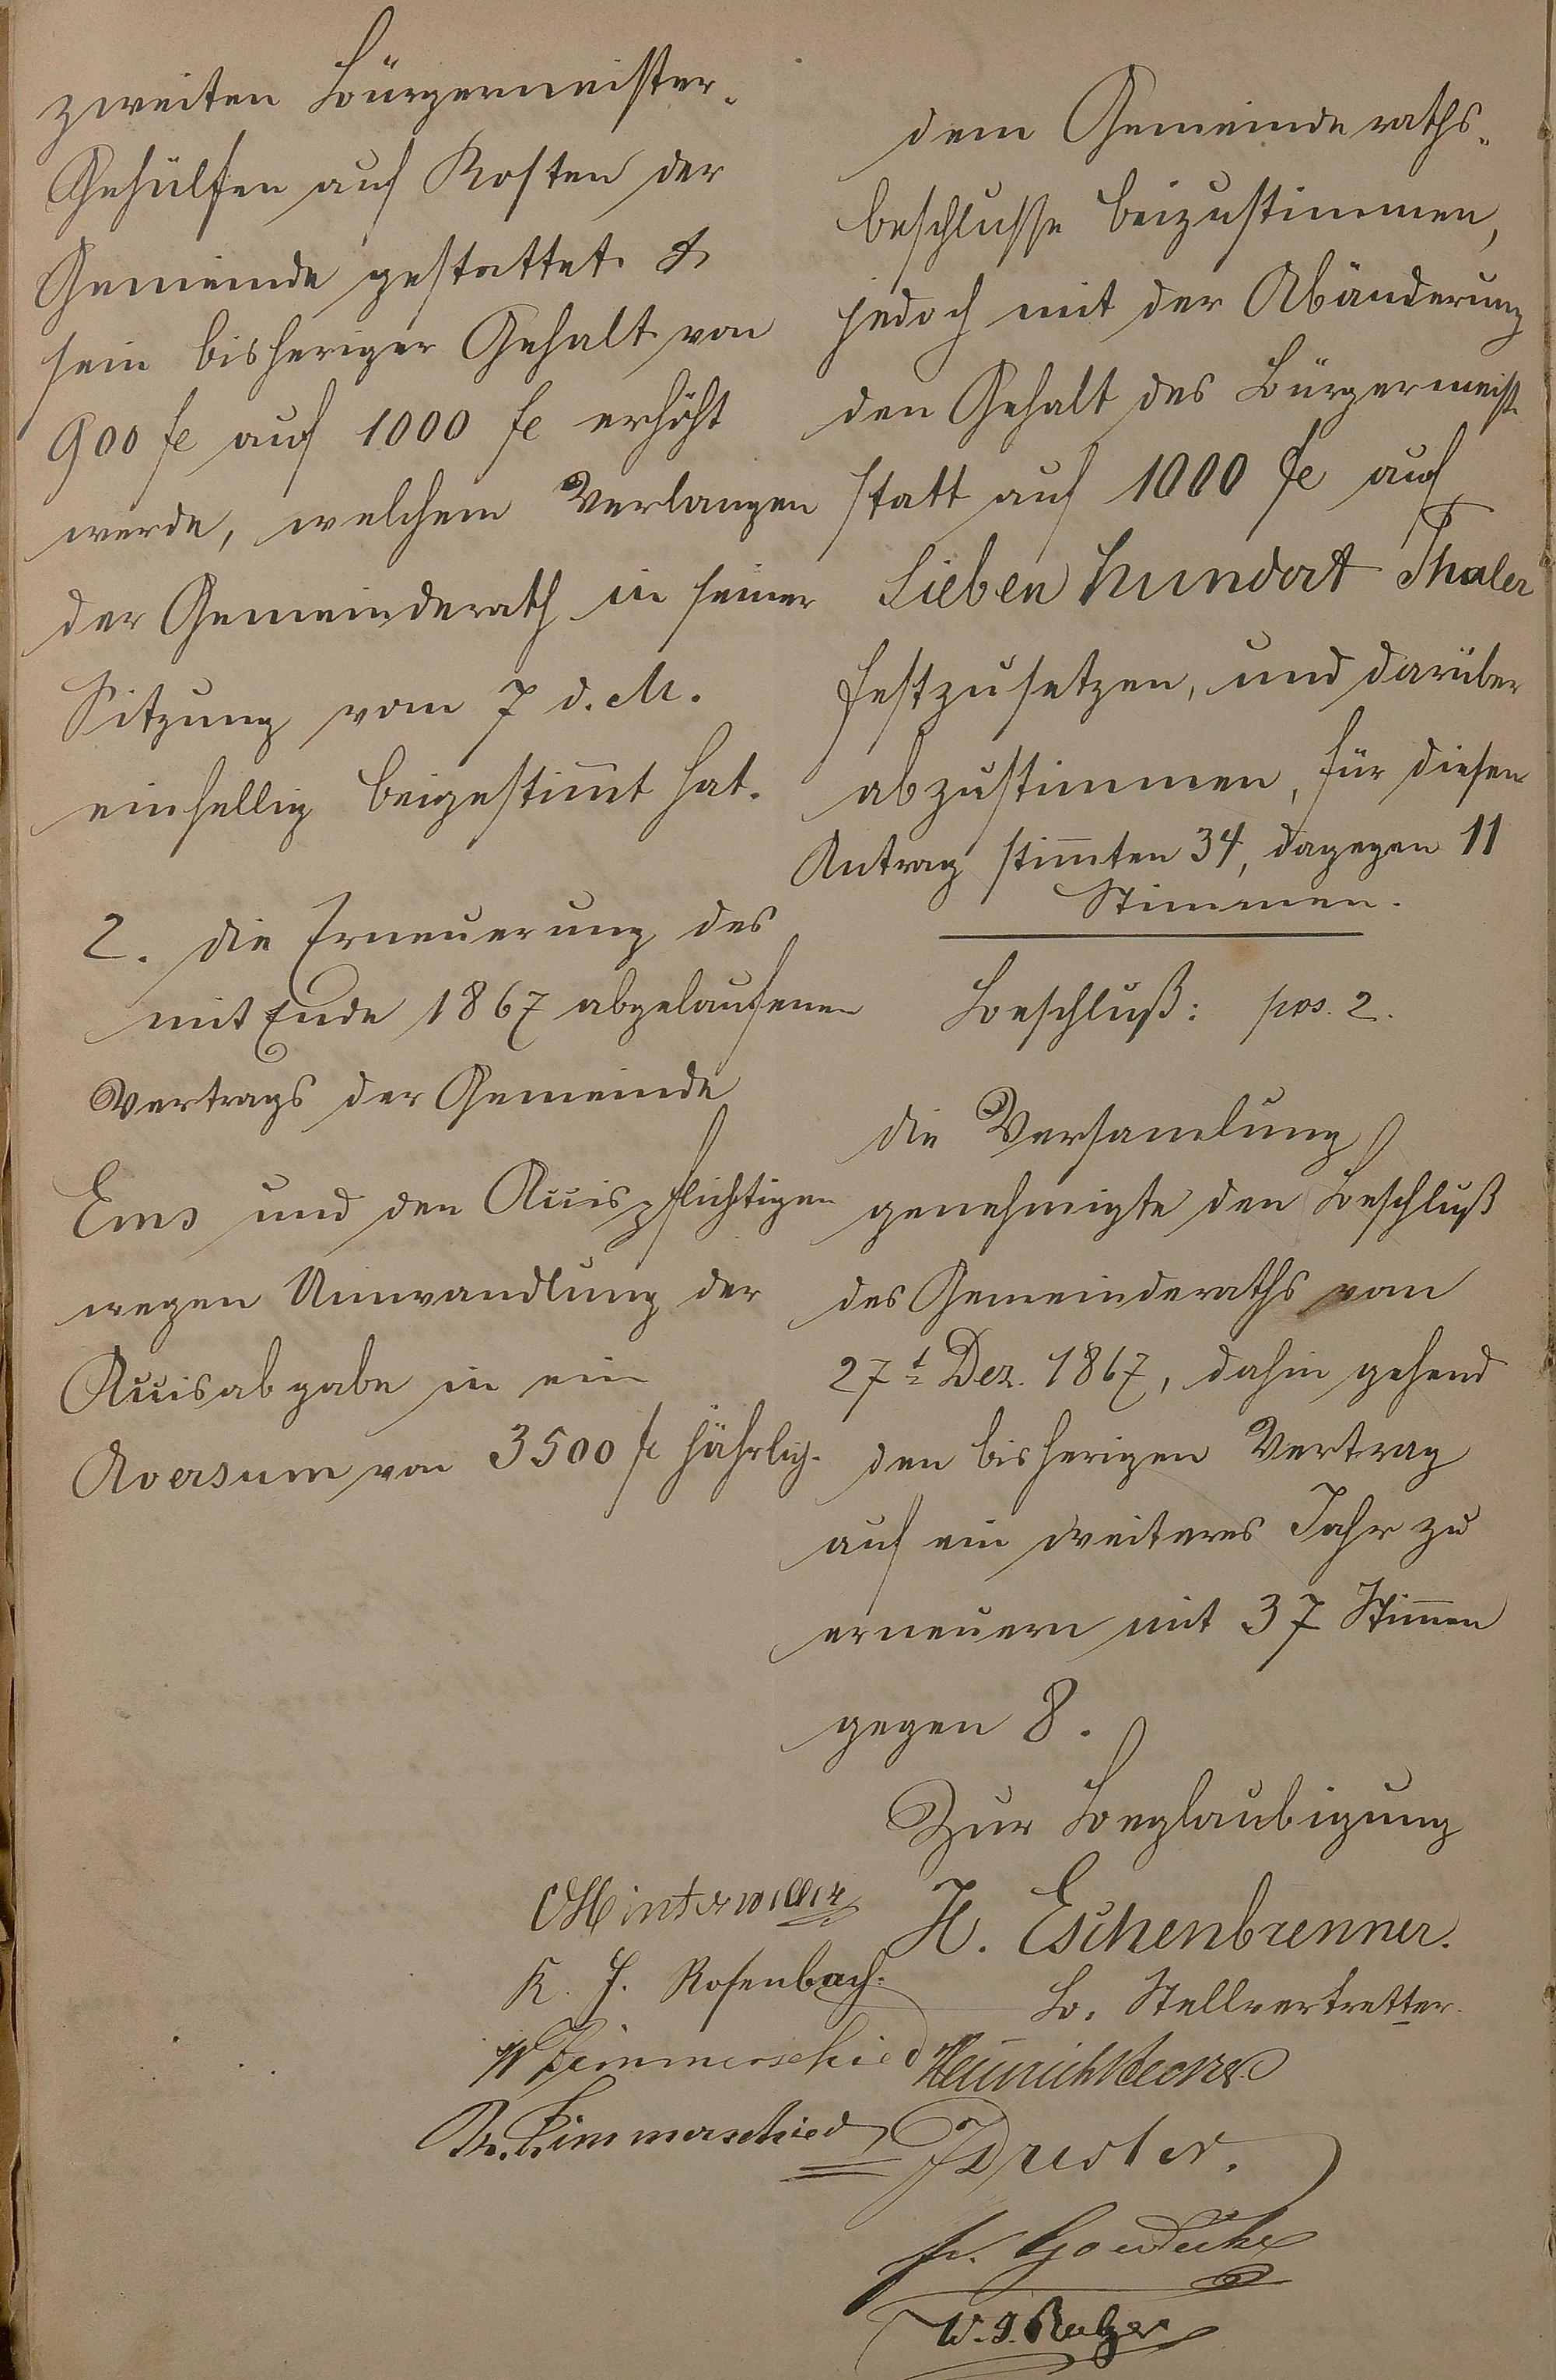 zweiten Bürgermeister-
Gehülfen auf Kosten der
Gemeinde gestattet &
sein bisheriger Gehalt von
900 fl auf 1000 fl erhöht
werde, welchem Verlangen
der Gemeinderath in seiner
Sitzung vom 7 d. M.
einhellig beigestim̅t hat.
2. die Erneuerung des
mit Ende 1867 abgelaufenen
Vertrags der Gemeinde
Ems und den Accispflichtigen
wegen Umwandlung der
Accisabgabe in ein
Aversum von 3500 fl jährlich.
dem Gemeinderaths-
beschlusse beizustimmen,
jedoch mit der Abänderung
den Gehalt des Bürgermeist.
statt auf 1000 fl auf
Sieben hundert Thaler
festzusetzen, und darüber
abzustimmen, für diesen
Antrag stim̅ten 34, dagegen 11
Stimmen.
Beschluß: pos. 2.
die Versam̅lung
genehmigte den Beschluß
des Gemeinderaths vom
27t Dez. 1867, dahin gehend
den bisherigen Vertrag
auf ein weiteres Jahr zu
erneuern mit 37 Stim̅en
gegen 8.
Zur Beglaubigung
H. Eschenbrenner.
B. Stellvertretter.
Hinterwäller
K. J. Rosenbach.
W Zimmerschied
Zimmerschied
Heinrich
W. J. Balzer